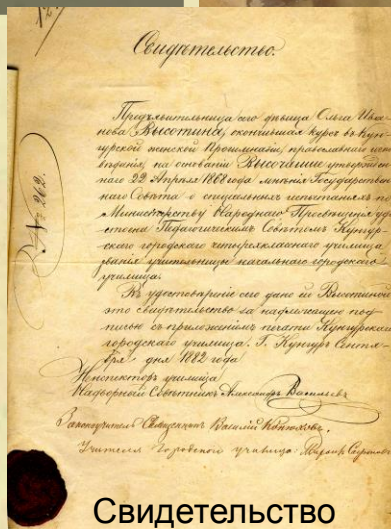 Свидѣтельство.
Предъявительница сего дѣвица Ольга Ива-
нова Высотина, окончившая курсъ въ Кун-
гурской женской Прогимназіи, православнаго испо-
вѣданія, на основаніи Высочайше утвержден-
наго 22 Апрѣля 1868 года мнѣнія Государствен-
наго Совѣта о спеціальныхъ испытаніяхъ по
Министерству Народнаго Просвѣщенія, удо-
стоена Педагогическимъ Совѣтомъ Кунгур-
скаго городскаго четырехкласснаго училища
званія учительницы начальнаго городскаго
училища.
Въ удостовѣреніе сего дано ей Высотиной
это свидѣтельство за надлежащею под-
писью съ приложеніемъ печати Кунгурскаго
городскаго училища. Г. Кунгуръ Сентя-
бря дня 1882 года
№ 262.
Инспекторъ училища
Надворный Совѣтникъ Александръ Васильевъ
Законоучитель Священникъ Василій
Учителя Городского училища:
Свидетельство